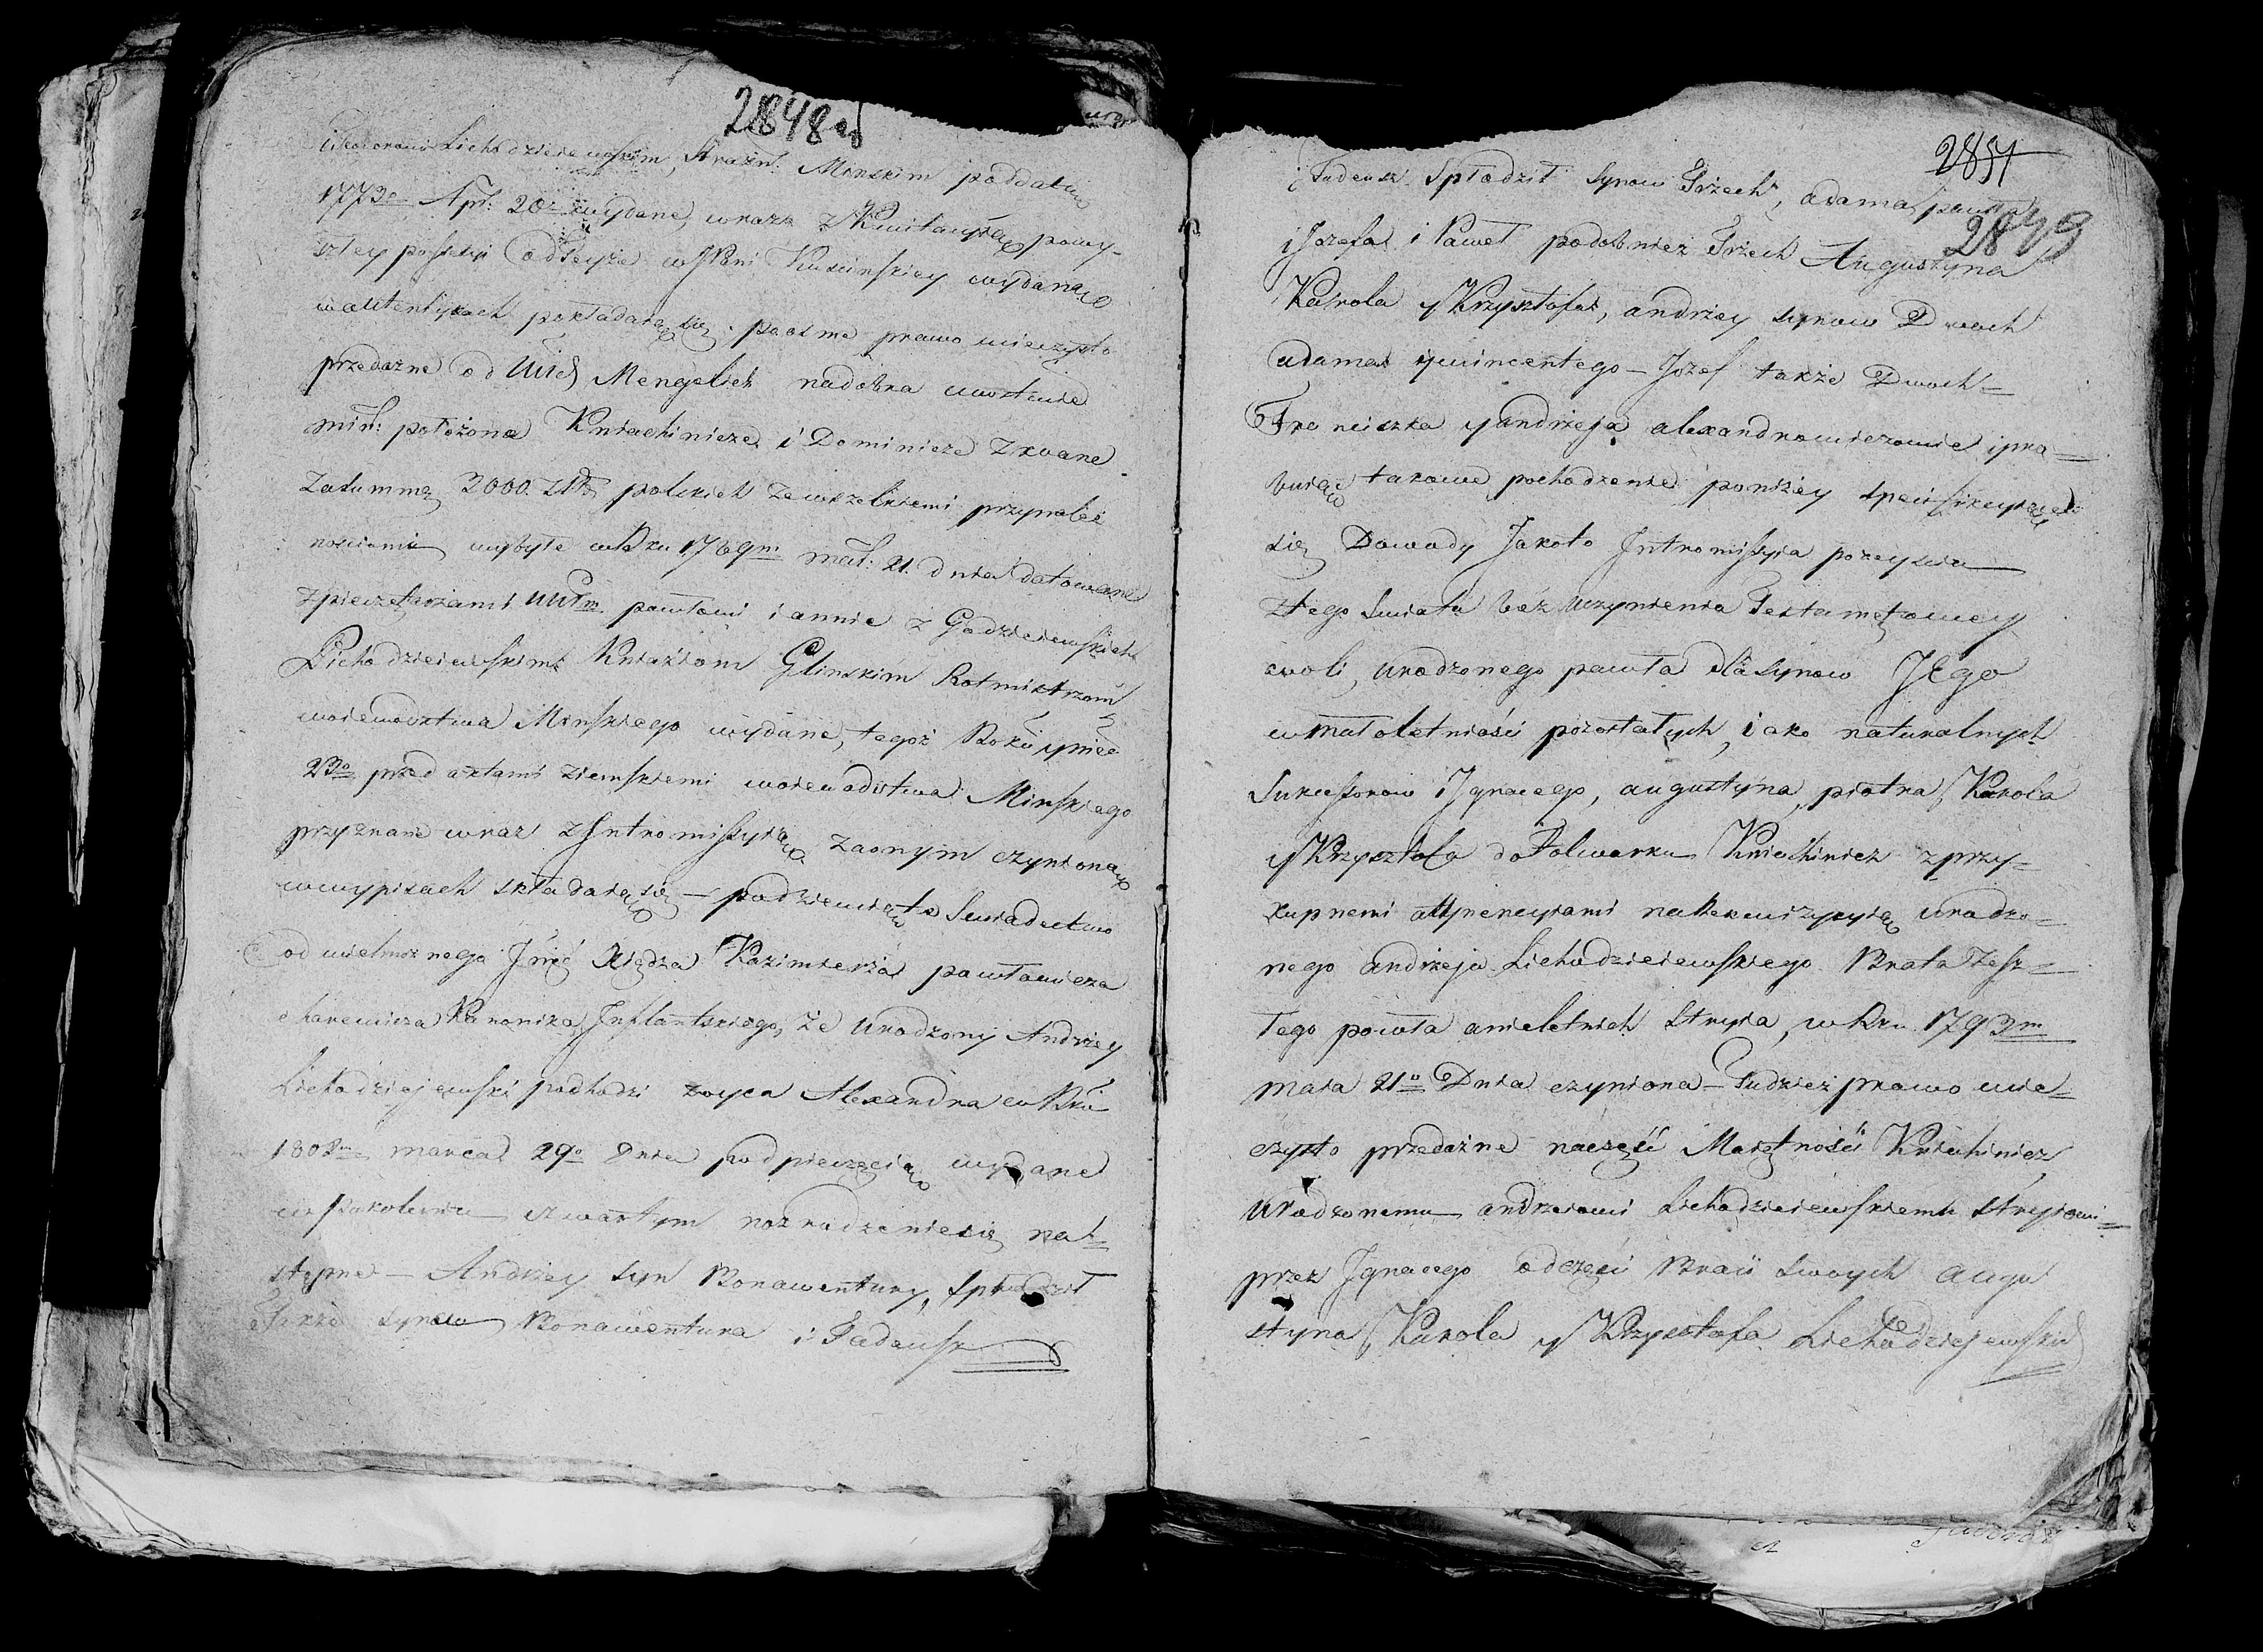 2848 об
Teodorowi Lichodzieiewskim, Strażn: Minskim pod datą
1773o Apr: 20o wydane, wraz z Kwitacyią powy-
szey possesyi od teyże wJPani Kucinskiey wydaną
w autentykach pokładaią się. posme prawo wieczysto
przedażne od Mengelich na dobra w wztwie
miń: położone Kniachinicze i Dominicze zwane
za summę 3000. Złł polskich ze wszelkiemi przynależ
nosciami wybyte wRku 1769m maŕ: 21. dnia datowane
z pieczętarzami pawłowi i annie z Godzieiewskich
Lichodzieiewskim Kniaźiom Glinskim Rotmistrzom
woiewodztwa Minskiego wydane, tegoż Roku
23o przed aktami ziemskiemi woiewodztwa Minskiego
przyznane wraz z Intromissyią za onym czynioną
w wypisach składaią się — podziewiąte Swiadectwo
od wielmożnego Jmść Xiędza Kazimierza pawłowicza
Kanonika Inflantskiego, że Urodzony Andrzey
Lichodziejewski pochodzi z oyca Alexandra w Rku
1808m marca 29o Dnia pod pieczęcią wydane
w pokoleniu czwartym rozrodzenie się nas=
tępne — Andrzey syn Bonawentury, spłodził
Także synow Bonawentura i Tadeusz
2851
2849
i Tadeusz spłodził synow Trzech, adama, pawła
i Jozefa i Paweł podobnież Trzech Augustyna
Karola y Krzysztofa, andrzey synow Dwoch
adama i wincentego — Jozef także Dwoch=
Franciszka y andrzeja alexandrowiczowie i pro=
buiąc takowe pochodzenie poniżey specifikuyące
się Dowody Jakoto Intromissyia po zeysciu
z tego Swiata bez uczynienia Testamętowey
woli, urodzonego pawła dla synow Jego
w małoletniości pozostałych, iako naturalnych
Sukcessorow Ignacego, augustyna, piotra, Karola
y Krzysztofa do Folwarku Kniachinicz z przy=
kupnemi attynencyiami na Rekwizycyią urodzo=
nego andrzeja Lichodzieiewskiego Brata zesz=
łego pawła a nieletnich stryia, w Rku 1793m
maia 21o Dnia czyniona — Tudzież prawo wie=
czysto przedażne na część Maiętności Kniachinicz
urodzonemu andrzeiowi Lichodzieiewskiemu stryiowi=
przez Ignacego od części Braci swoych Augu
styna Karola y Krzysztofa Lichodziejewskich